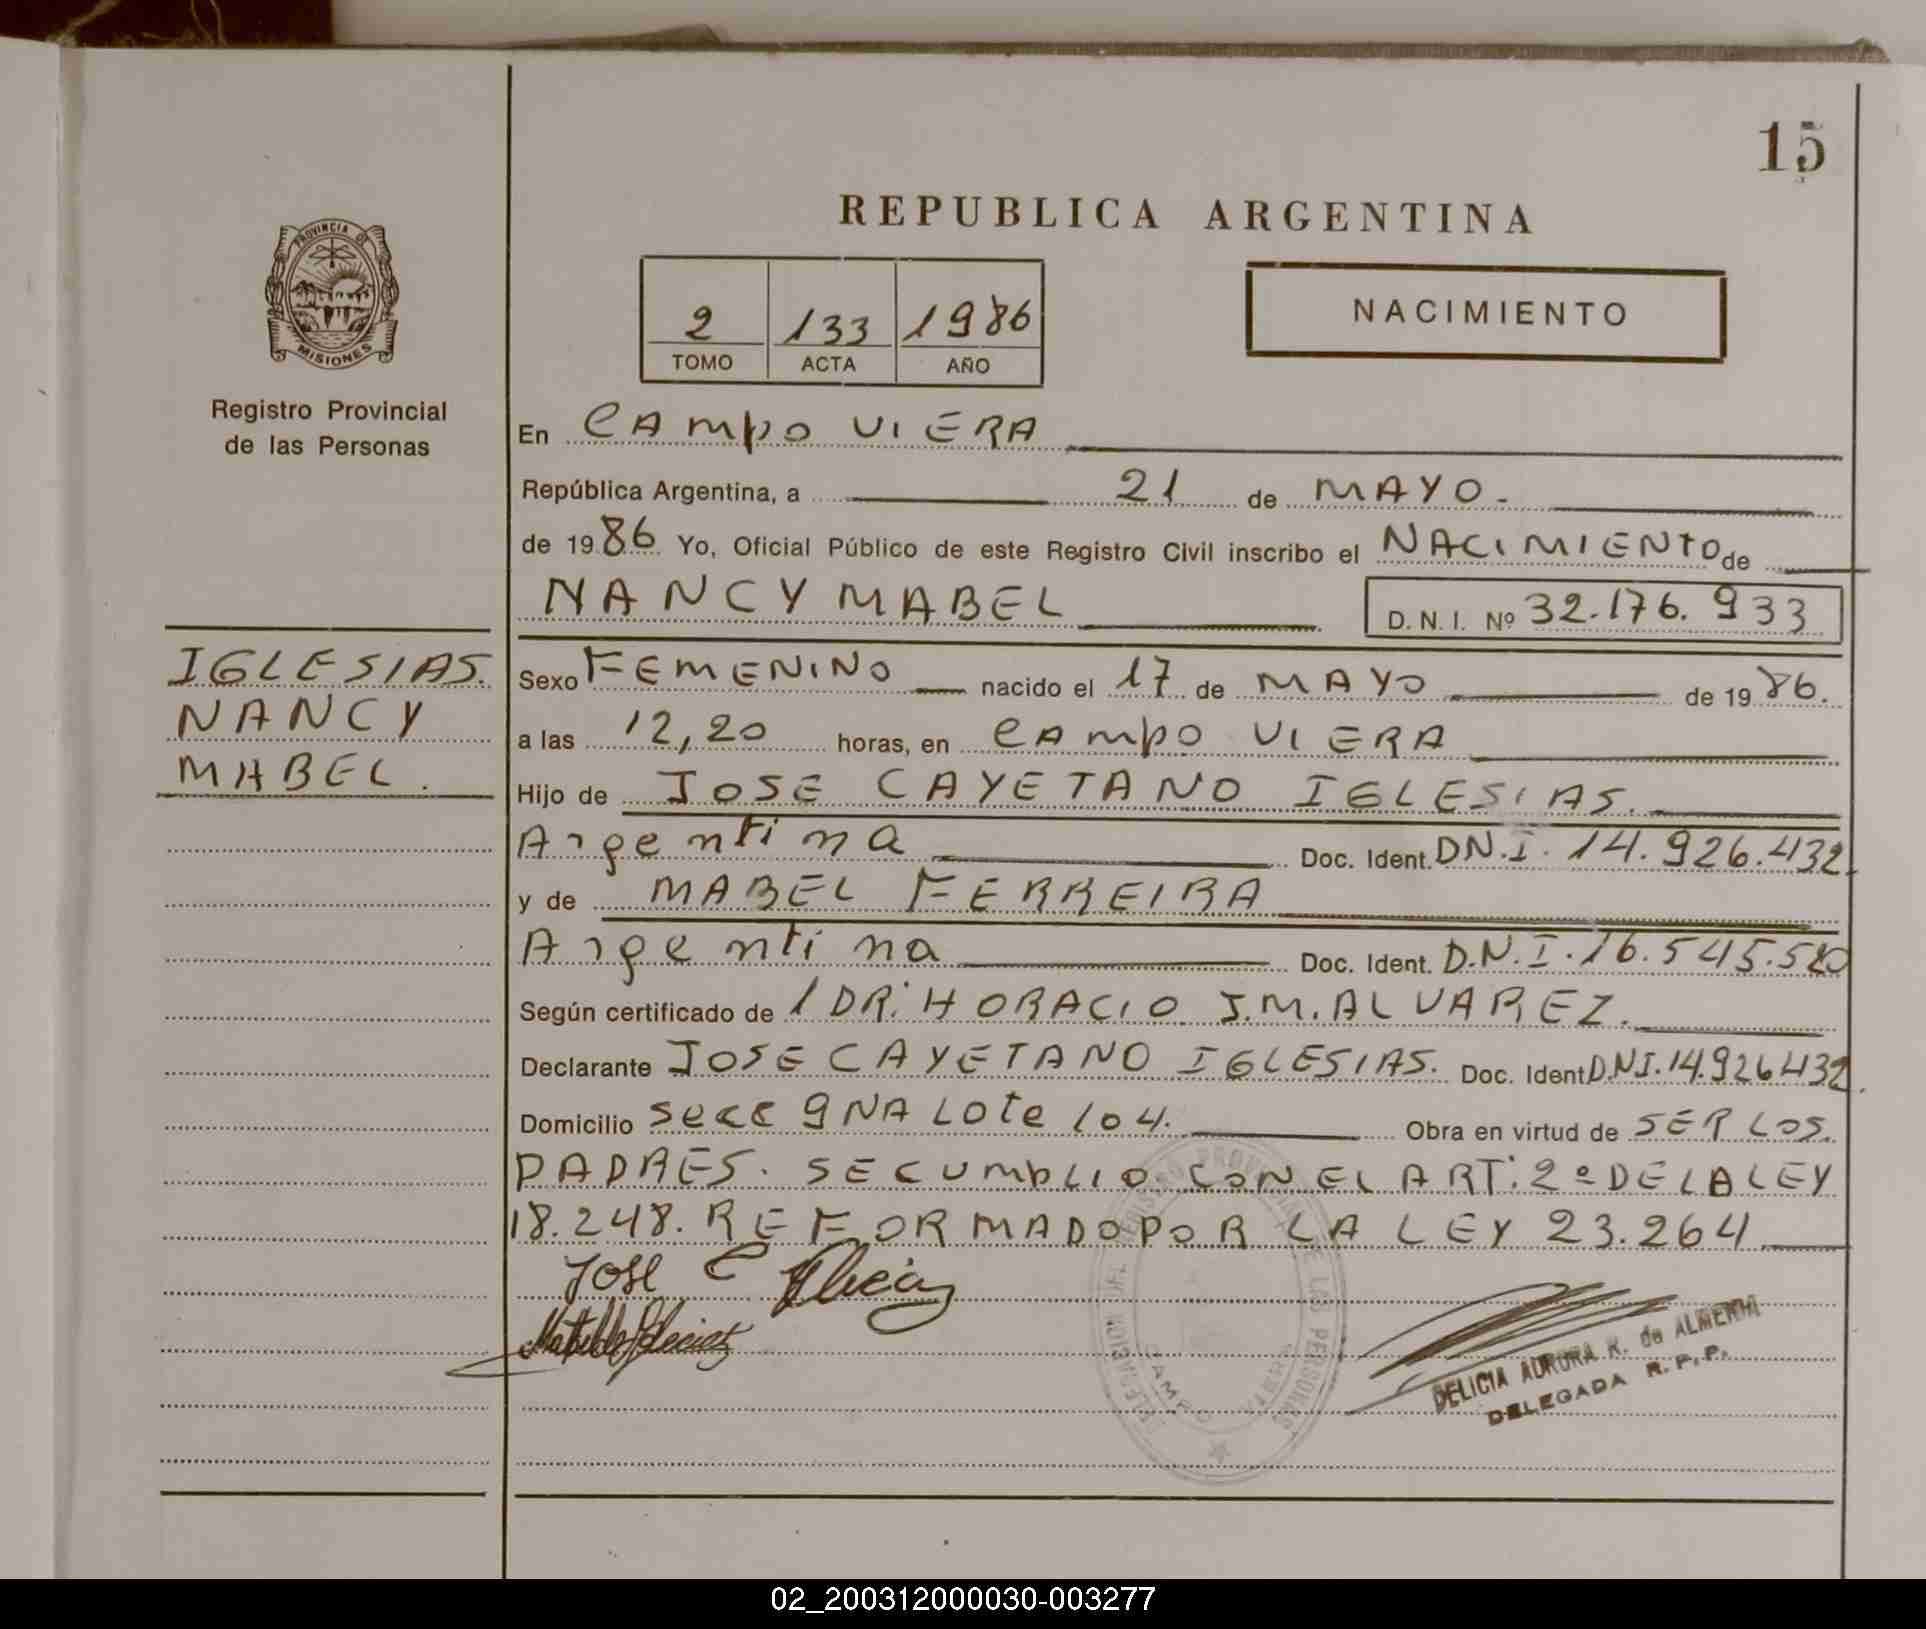 15
REPUBLICA ARGENTINA
PROVINCIA DE
MISIONES
Registro Provincial
de las Personas
2 133 1986
TOMO ACTA AÑO
NACIMIENTO
En CAMPO VIERA
República Argentina, a 21 de MAYO.
de 1986 Yo, Oficial Público de este Registro Civil inscribo el NACIMIENTO de
NANCY MABEL D.N.I. Nº 32.176.933
IGLESIAS.
NANCY
MABEL.
Sexo FEMENINO nacido el 17 de MAYO de 1986.
a las 12,20 horas, en CAMPO VIERA
Hijo de JOSE CAYETANO IGLESIAS.
Argentina Doc. Ident. DN.I. 14.926.432
y de MABEL FERREIRA
Argentina Doc. Ident. D.N.I. 16.545.5
Según certificado de 1 DR. HORACIO J.M. ALVAREZ.
Declarante JOSE CAYETANO IGLESIAS. Doc. Ident D.N.I. 14.926432.
Domicilio secc 9NA LOte 104. Obra en virtud de SER LOS.
PADRES. SE CUMPLIO CON EL ART. 2º DE LA LEY
18.248. REFORMADO POR LA LEY 23.264
José C
DELEGACION DEL REGISTRO PROVINCIAL DE LAS PERSONAS
CAMPO VIERA
DELICIA AURORA R. de ALMEIRA
DELEGADA R.P.P.
02_200312000030-003277